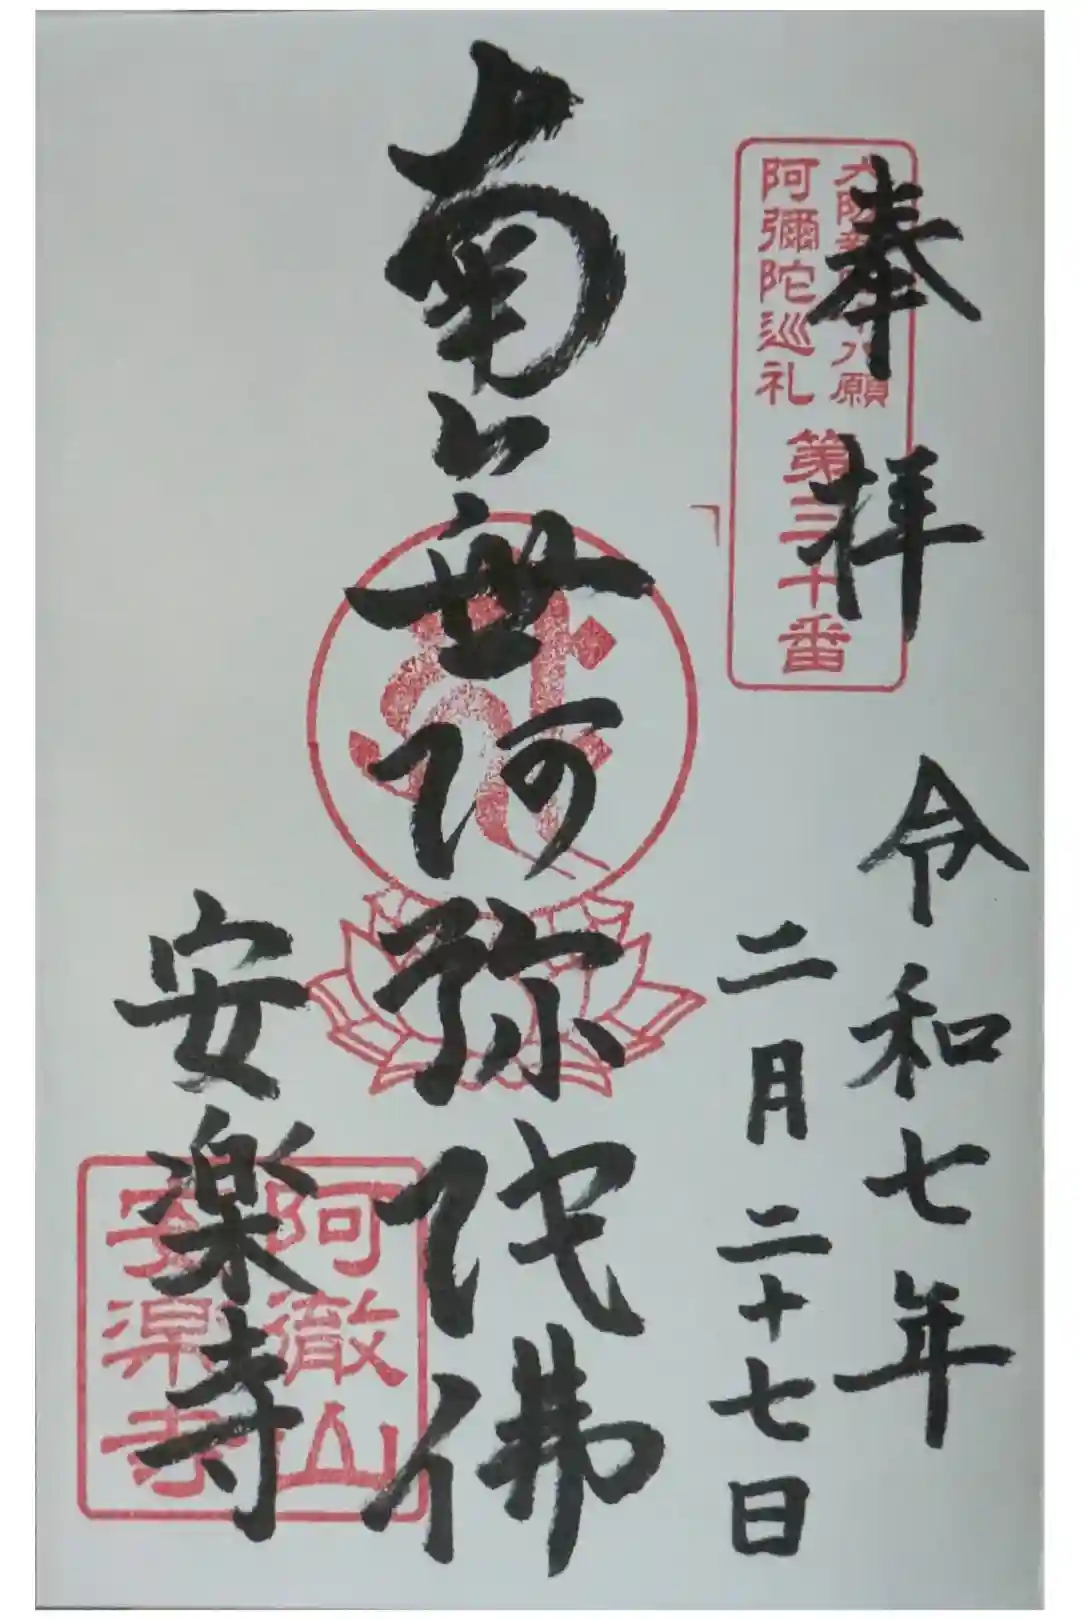 奉拝
大阪新四十八願
阿彌陀巡礼
第三十番
令和七年
二月二十七日
南無阿弥陀佛
安楽寺
阿徹山
安楽寺